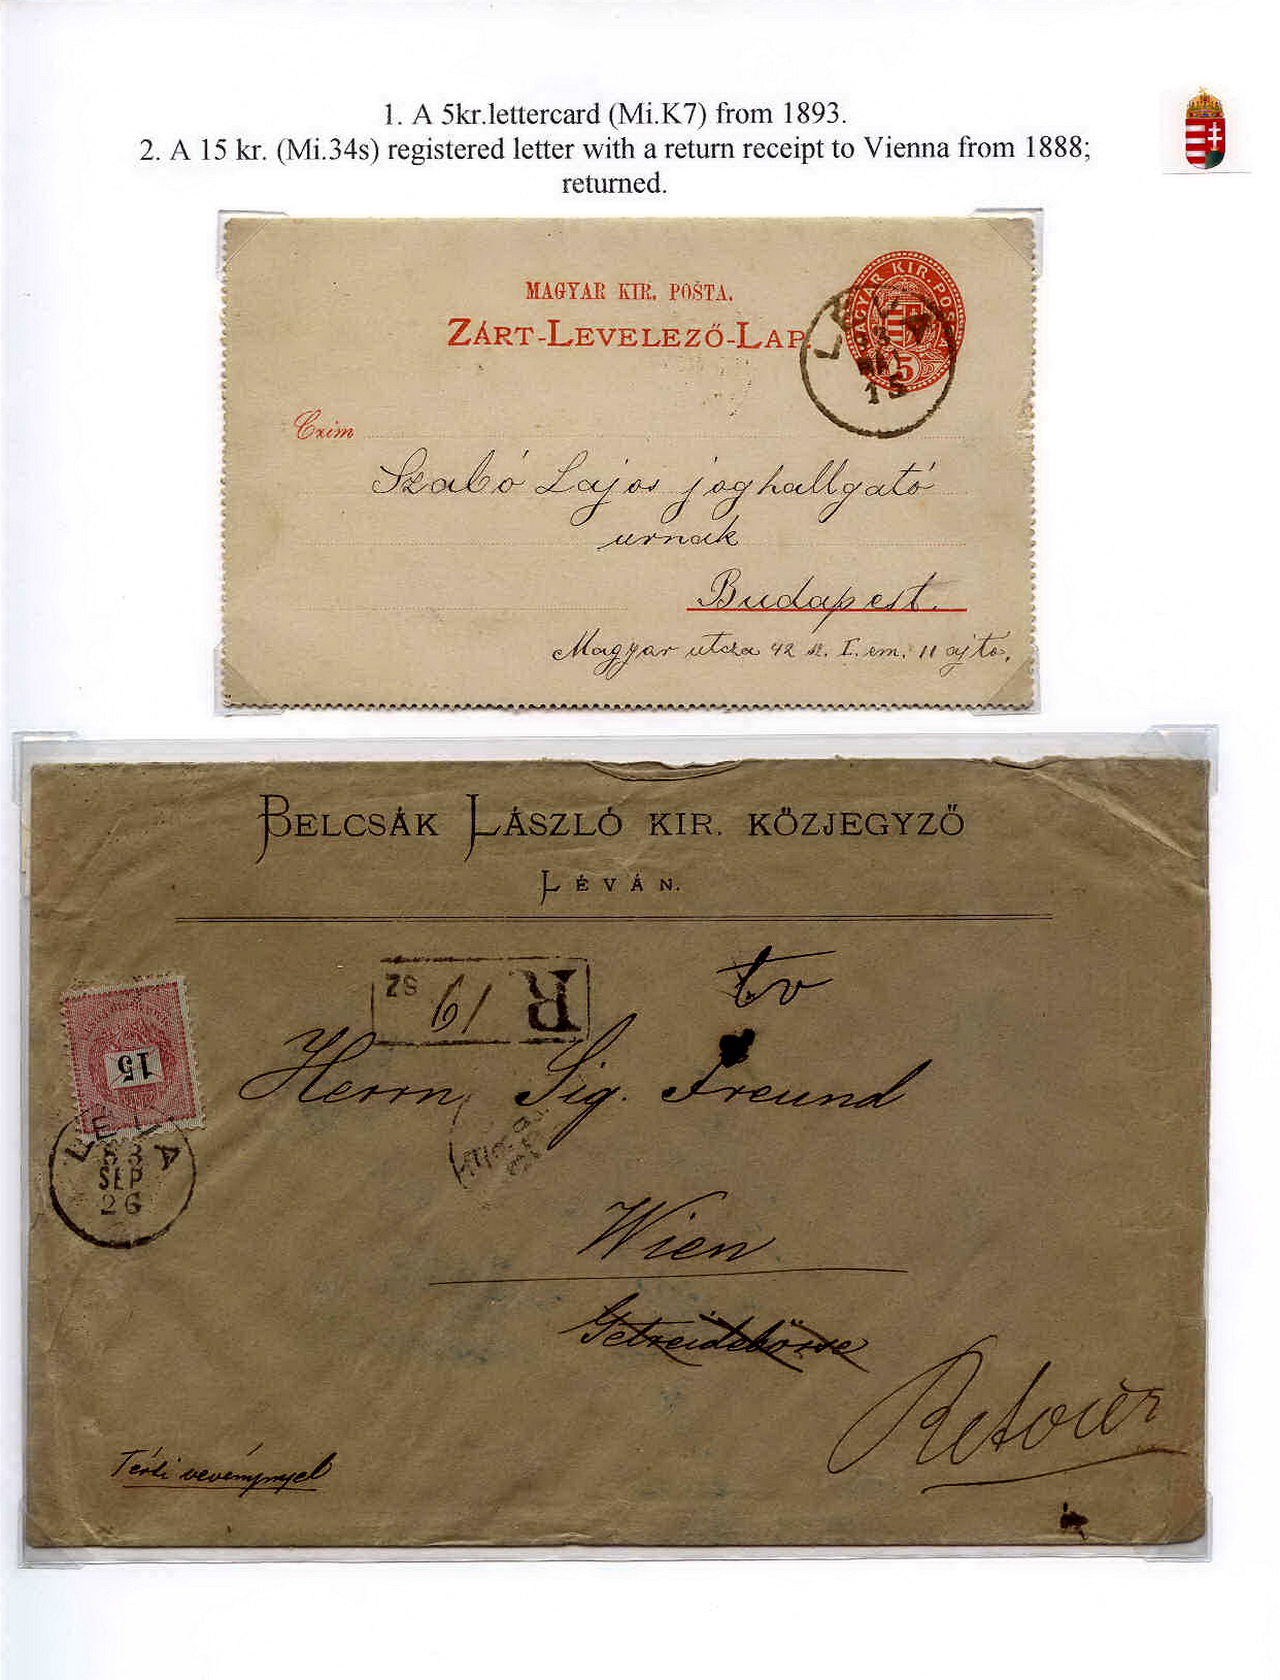 1. A 5kr.lettercard (Mi.K7) from 1893.
2. A 15 kr. (Mi.34s) registered letter with a return receipt to Vienna from 1888;
returned.
MAGYAR KIR. POSTA.
ZÁRT-LEVELEZŐ-LAP.
MAGYAR KIR. POSTA
5
LÉVA
93
15
Czim
Szabó Lajos joghallgató
urnak
Budapest.
Magyar utcza 42 sz. I. em. 11 ajtó.
BELCSÁK LÁSZLÓ KIR. KÖZJEGYZŐ
LÉVÁN.
R 19
tv
15
Herrn Sig. Freund
LÉVA
83
SEP
26
Wien
Getreidebörse
Retour
Térti vevénynyel